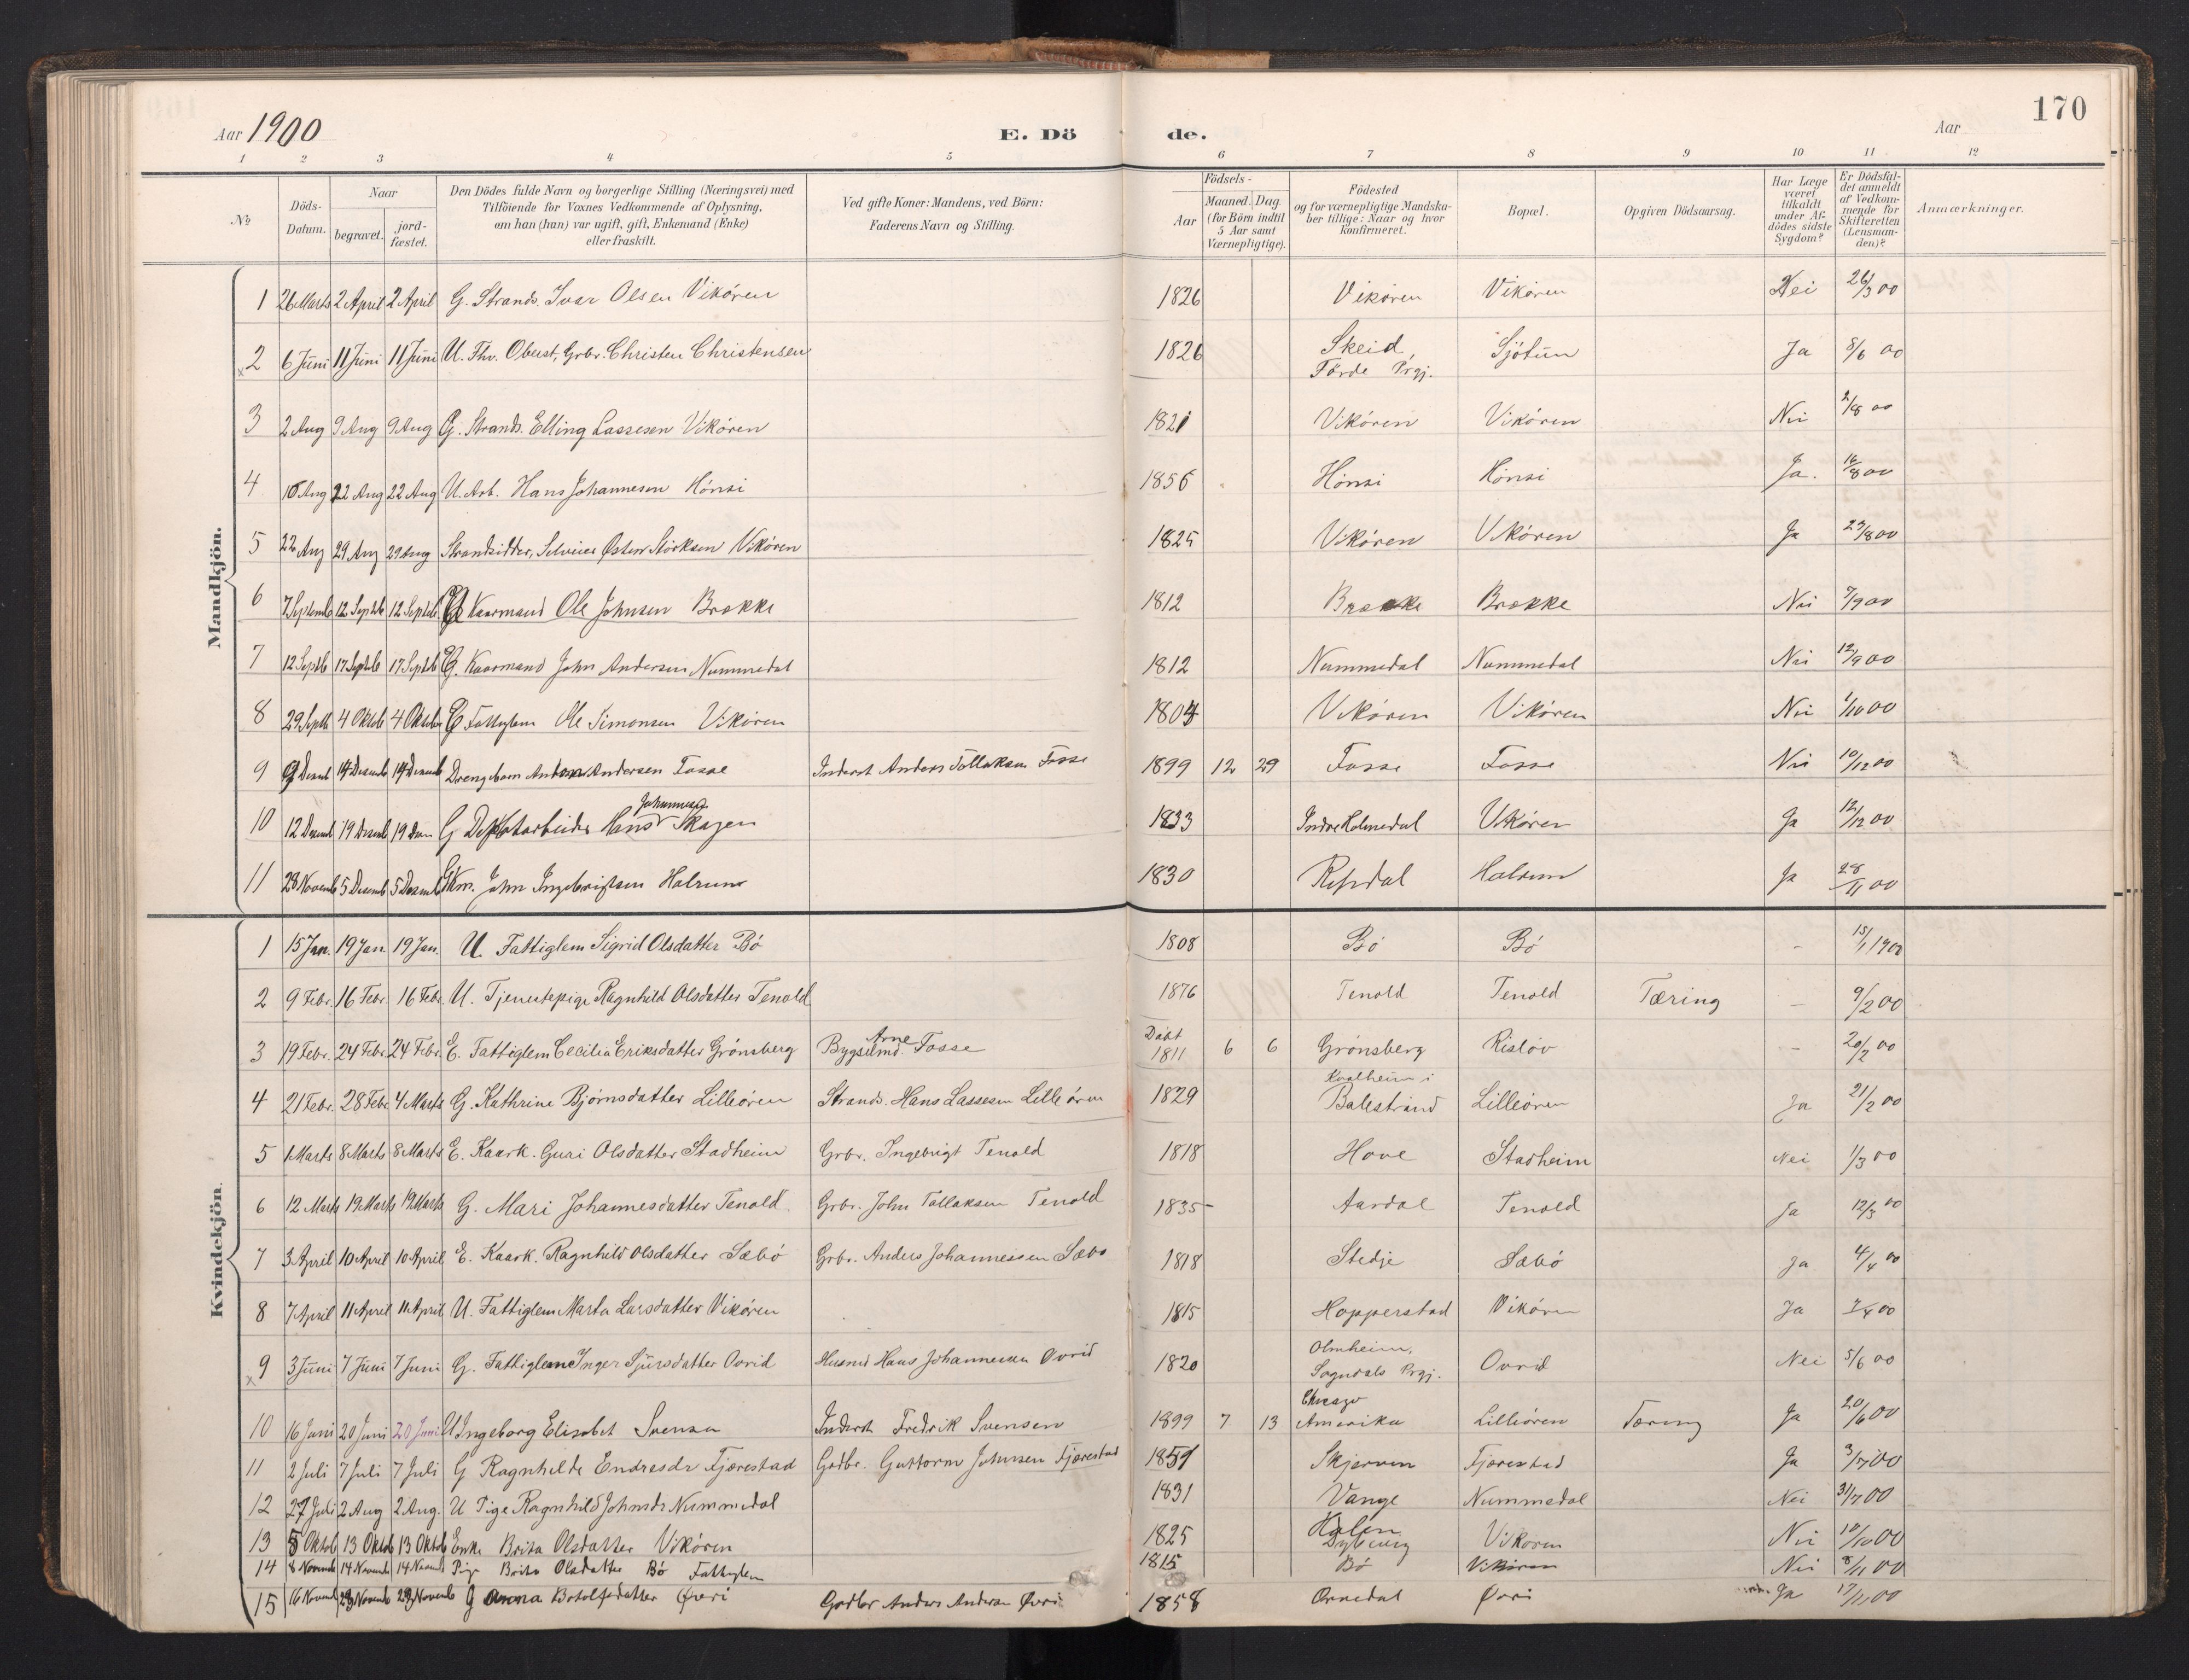 170
Aar 1900 E. Dö de. Aar
1 2 3 4 5 6 7 8 9 10 11 12
No
Döds-Datum.
Naar
begravet. jord-fæstet.
Den Dödes fulde Navn og borgerlige Stilling (Næringsvei) med
Tilföiende for Voxnes Vedkommende af Oplysning,
om han (hun) var ugift, gift, Enkemand (Enke)
eller fraskilt.
Ved gifte Koner: Mandens, ved Börn:
Faderens Navn og Stilling.
Födsels-
Aar Maaned. Dag
(for Börn indtil
5 Aar samt
Værnepligtige).
Födested
og for værnepligtige Mandska-
ber tillige: Naar og hvor
konfirmeret.
Bopæl.
Opgiven Dödsaarsag.
Har Læge
været
tilkaldt
under Af-
dödes sidste
Sygdom?
Er Dödsfal-
det anmeldt
af Vedkom-
mende for
Skifteretten
(Lensman-
den)?
Anmærkninger.
Mandkjön.
1 26 Marts 2 April 2 April G. Strands. Ivar Olsen Vikören 1826 Vikören Vikören Nei 26/3 00
2 6 Juni 11 Juni 11 Juni U. Fhv. Oberst, Grbr. Christen Christensen 1826 Skeid, Förde Prgj. Sjötun Ja 8/6 00
3 2 Aug 9 Aug 9 Aug G. Strands. Elling Lassesen Vikören 1821 Vikören Vikören Nei 2/8 00
4 16 Aug 22 Aug 22 Aug U. Arb. Hans Johannesen Hönsi 1856 Hönsi Hönsi Ja. 16/8 00
5 22 Aug 29 Aug 29 Aug Strandsidder, Selveier Östen Störksen Vikören 1825 Vikören Vikören Ja 23/8 00
6 7 Septemb 12 Septb 12 Septb Kaarmand Ole Johnsen Brække 1812 Brække Brække Nei 7/9 00
7 12 Septb 17 Septb 17 Septb G. Kaarmand John Andersen Nummedal 1812 Nummedal Nummedal Nei 12/9 00
8 29 Septb 4 Oktob 4 Oktober E Fattiglem Ole Simonsen Vikören 1804 Vikören Vikören Nei 1/10 00
9 9 Desemb 14 Desemb 14 Desemb Drengebarn Andersen Fosse Inderst Anders Tollaksen Fosse 1899 12 29 Fosse Fosse Nei 10/12 00
10 12 Desemb 19 Desemb 19 Desem G Hans Johannesen Skagen 1833 Indre Holmedal Vikören Ja 12/12 00
11 28 Novemb 5 Desemb 5 Desemb G Km. John Ingebrigtsen Halsum 1830 Halsum Ja 28/11 00
Kvindekjön.
1 15 Jan. 19 Jan. 19 Jan. U. Fattiglem Sigrid Olsdatter Bö 1808 Bö Bö - 15/1 1900
2 9 Febr. 16 Febr. 16 Febr. U. Tjenestepige Ragnhild Olsdatter Tenold 1876 Tenold Tenold Tæring - 9/2 00
3 19 Febr. 24 Febr. 24 Febr. E. Fattiglem Cecilia Eriksdatter Grönsberg Bygselmd. Arne Fosse Döbt 1811 6 6 Grönsberg Rislöv - 20/2 00
4 21 Febr. 28 Febr 4 Marts G. Kathrine Björnsdatter Lilleören Strands. Hans Lassesen Lilleören 1829 Kvalheim i Balestrand Lilleören Ja 21/2 00
5 1 Marts 8 Marts 8 Marts E. Kaark. Guri Olsdatter Stadheim Grbr. Ingebrigt Tenold 1818 Hove Stadheim Nei 1/3 00
6 12 Marts 19 Marts 19 Marts G. Mari Johannesdatter Tenold. Grbr. John Tollaksen Tenold 1835- Aardal Tenold Ja 12/3 00
7 3 April 10 April 10 April E. Kaark. Ragnhild Olsdatter Sæbö Grbr. Anders Johannessen Sæbö 1818 Stedje Sæbö Ja 4/4 00
8 7 April 11 April 11 April U. Fattiglem Marta Larsdatter Vikören 1815 Hopperstad Vikören Ja 7/4 00
9 3 Juni 7 Juni 7 Juni G. Fattiglem Inger Sjursdatter Ovrid Husmd Hans Johannessen Ovrid 1820 Olmheim, Sogndals Prgj. Ovrid Nei 5/6 00
10 16 Juni 20 Juni 20 Juni U Ingeborg Elisabet Svensen Inderst Fredrik Svensen 1899 7 13 Chicago Amerika Lilleören Tæring Ja 20/6 00
11 2 Juli 7 Juli 7 Juli G Ragnhilde Endresdr Fjærestad Gadbr. Guttorm Johnsen Fjærestad 1851 Skjerven Fjærestad Ja 3/7 00
12 27 Juli 2 Aug 2 Aug. U Pige Ragnhild Johnsdr Nummedal 1831 Vange Nummedal Nei 31/7 00
13 8 Oktob 13 Oktob 13 Oktob Enke Brita Olsdatter Vikören 1825 Vikören Nei 10/10 00
14 8 Novemb 14 Novemb 14 Novemb Pige Brita Olsdatter Bö Fattiglem 1815 Bö Vikören Nei 8/11 00
15 16 Novemb 23 Novemb 23 Novemb G Anna Botolfsdatter Övri Gadbr Anders Andersen Övri 1858 Ornedal Övri Ja 17/11 00